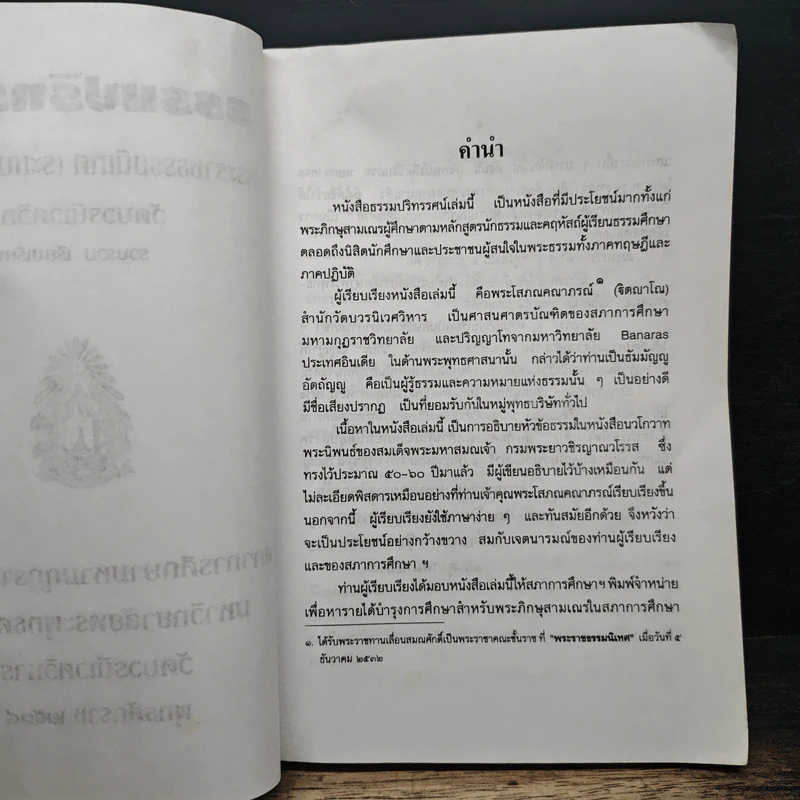 คำนำ
หนังสือธรรมปริทรรศน์เล่มนี้ เป็นหนังสือที่มีประโยชน์มากทั้งแก่
พระภิกษุสามเณรผู้ศึกษาตามหลักสูตรนักธรรมและคฤหัสถ์ผู้เรียนธรรมศึกษา
ตลอดถึงนิสิตนักศึกษาและประชาชนผู้สนใจในพระธรรมทั้งภาคทฤษฎีและ
ภาคปฏิบัติ
ผู้เรียบเรียงหนังสือเล่มนี้ คือพระโสภณคณาภรณ์ ๑ (ฐิตญาโณ)
สำนักวัดบวรนิเวศวิหาร เป็นศาสนศาตรบัณฑิตของสภาการศึกษา
มหามกุฏราชวิทยาลัย และปริญญาโทจากมหาวิทยาลัย Banaras
ประเทศอินเดีย ในด้านพระพุทธศาสนานั้น กล่าวได้ว่าท่านเป็นธัมมัญญู
อัตถัญญู คือเป็นผู้รู้ธรรมและความหมายแห่งธรรมนั้น ๆ เป็นอย่างดี
มีชื่อเสียงปรากฏ เป็นที่ยอมรับกันในหมู่พุทธบริษัททั่วไป
เนื้อหาในหนังสือเล่มนี้ เป็นการอธิบายหัวข้อธรรมในหนังสือนวโกวาท
พระนิพนธ์ของสมเด็จพระมหาสมณเจ้า กรมพระยาวชิรญาณวโรรส ซึ่ง
ทรงไว้ประมาณ ๕๐-๖๐ ปีมาแล้ว มีผู้เขียนอธิบายไว้บ้างเหมือนกัน แต่
ไม่ละเอียดพิสดารเหมือนอย่างที่ท่านเจ้าคุณพระโสภณคณาภรณ์เรียบเรียงขึ้น
นอกจากนี้ ผู้เรียบเรียงยังใช้ภาษาง่าย ๆ และทันสมัยอีกด้วย จึงหวังว่า
จะเป็นประโยชน์อย่างกว้างขวาง สมกับเจตนารมณ์ของท่านผู้เรียบเรียง
และของสภาการศึกษา ฯ
ท่านผู้เรียบเรียงได้มอบหนังสือเล่มนี้ให้สภาการศึกษาฯ พิมพ์จำหน่าย
เพื่อหารายได้บำรุงการศึกษาสำหรับพระภิกษุสามเณรในสภาการศึกษา
๑. ได้รับพระราชทานเลื่อนสมณศักดิ์เป็นพระราชาคณะชั้นราช ที่ "พระราชธรรมนิเทศ" เมื่อวันที่ ๕
ธันวาคม ๒๕๓๒